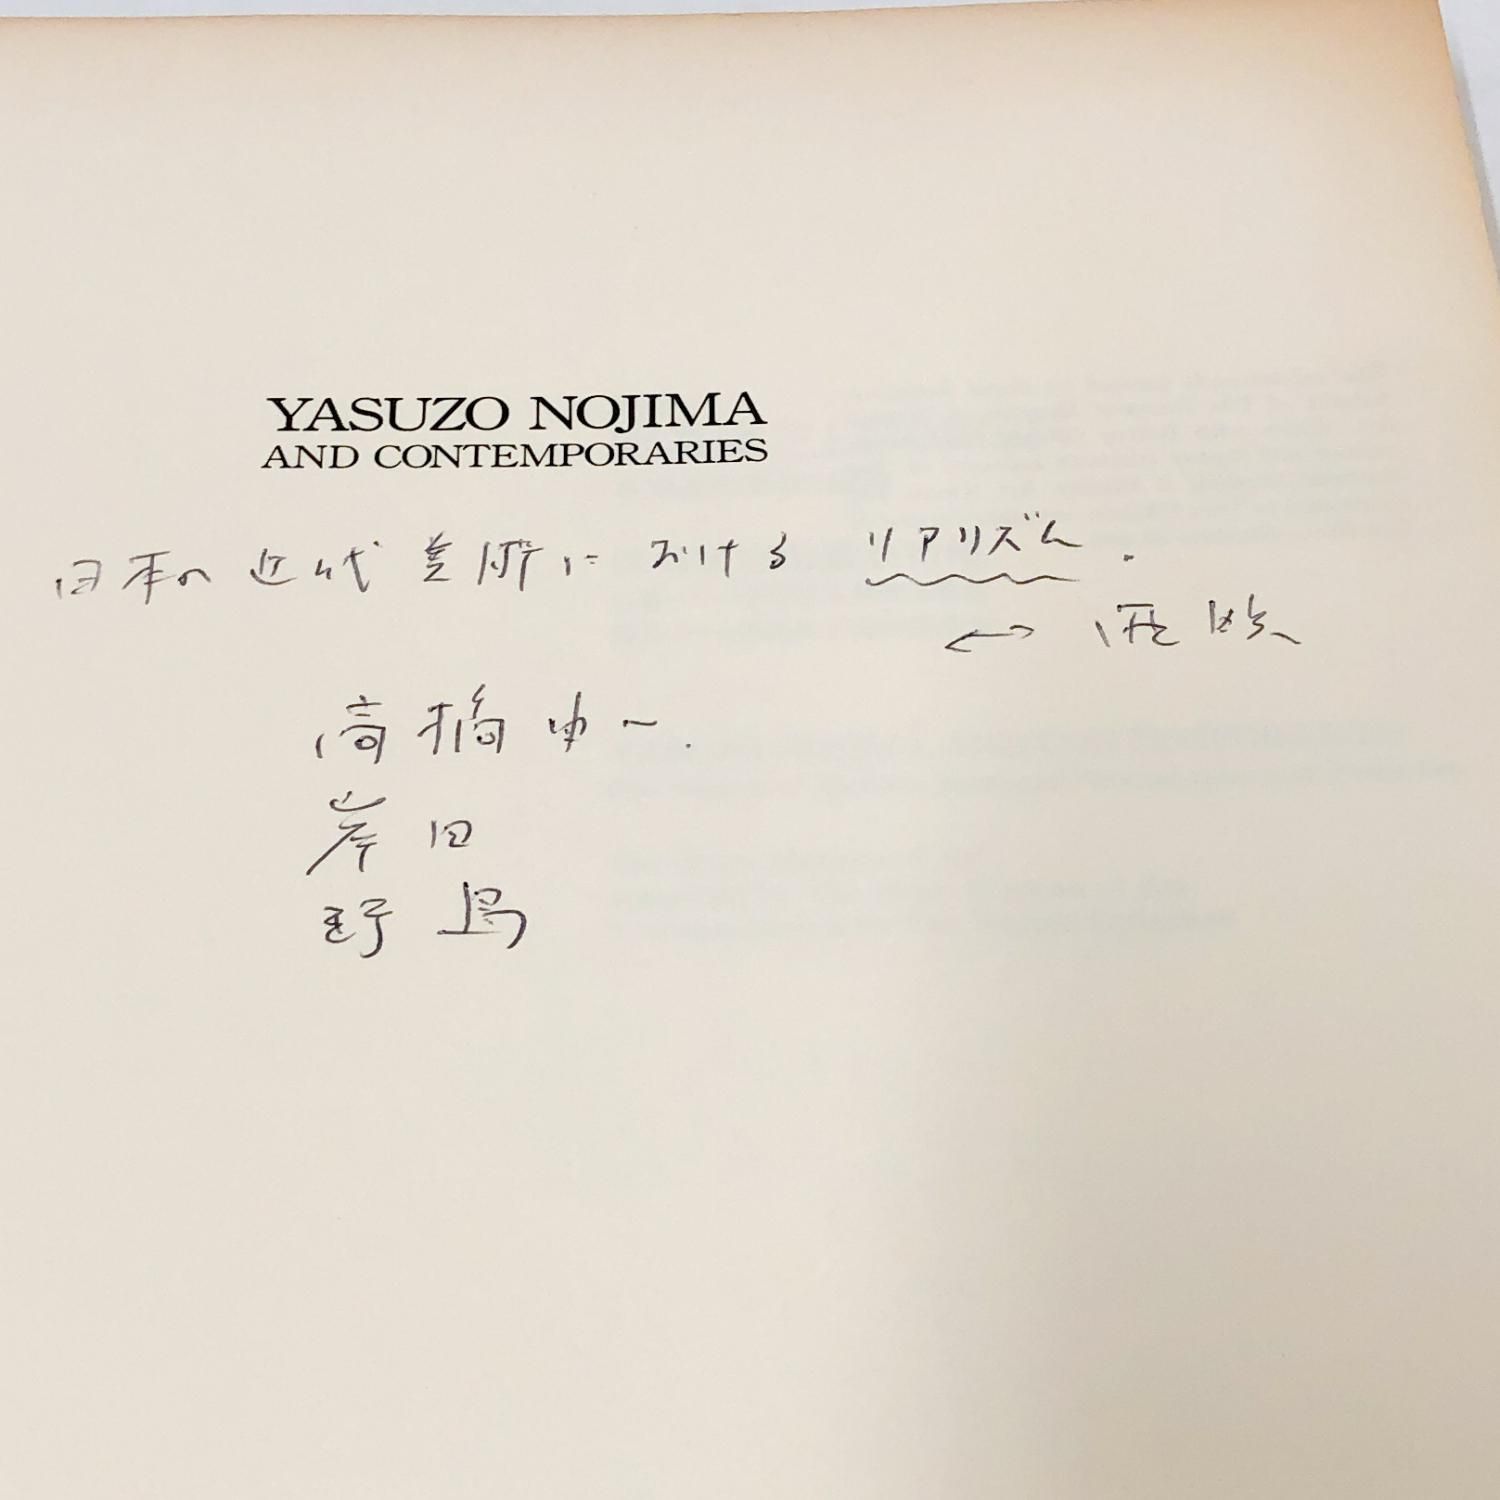 YASUZO NOJIMA
AND CONTEMPORARIES
日本の近代美術における リアリズム.
↔ 西欧
高橋由一.
岸田
野島